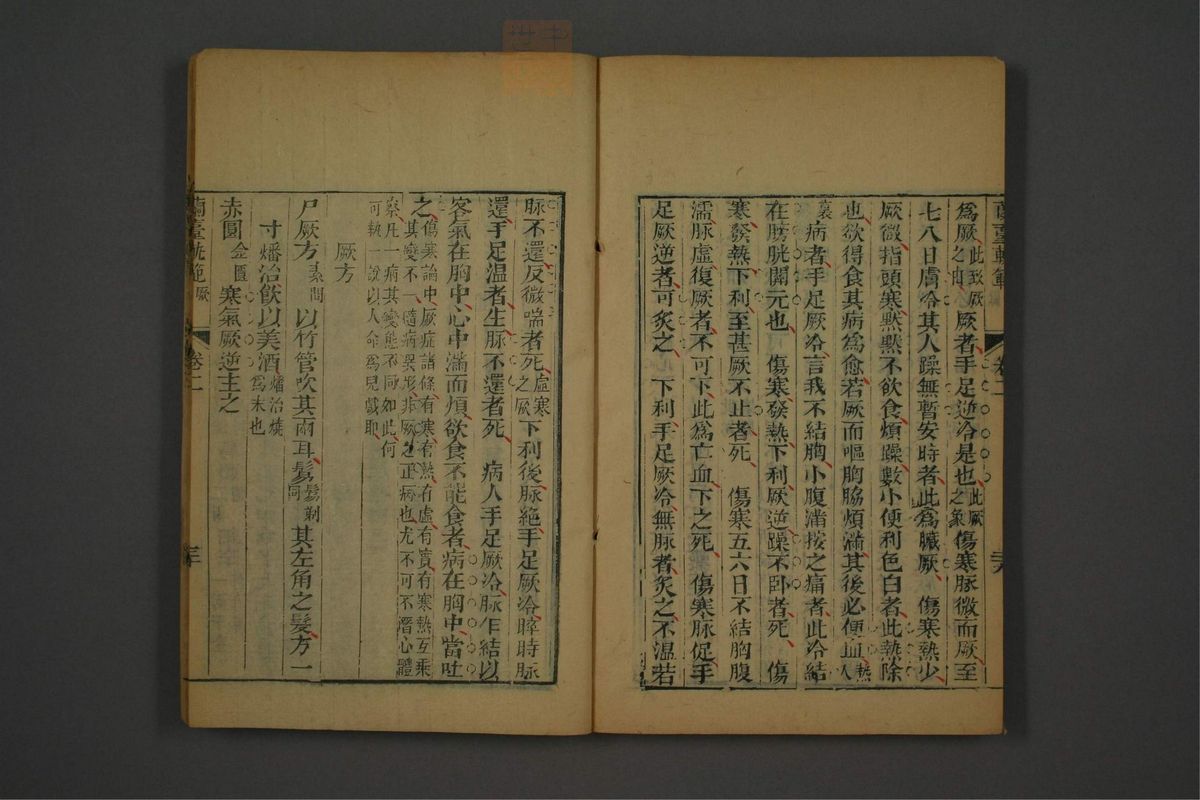 蘭臺軌範
卷二
為厥此致厥之由厥者手足逆冷是也此厥之象傷寒脉微而厥至
七八日膚冷其人躁無暫安時者此為臟厥 傷寒熱少
厥微指頭寒默默不欲食煩躁數小便利色白者此熱除
也欲得食其病為愈若厥而嘔胸脇煩滿其後必便血熱入
裏病者手足厥冷言我不結胸小腹滿按之痛者此冷結
在膀胱關元也 傷寒發熱下利厥逆躁不卧者死 傷
寒發熱下利至甚厥不止者死 傷寒五六日不結胸腹
濡脉虛復厥者不可下此為亡血下之死 傷寒脉促手
足厥逆者可炙之 下利手足厥冷無脉者炙之不溫若
脉不還反微喘者死虛寒之厥下利後脉絶手足厥冷晬時脉
還手足溫者生脉不還者死 病人手足厥冷脉乍結以
客氣在胸中心中滿而煩欲食不能食者病在胸中當吐
之傷寒論中厥症諸條有寒有熱有虛有實有寒熱互乘
其變不一隨病異形非厥之正病也尤不可不潛心體
察凡一病其變態不同如此何
可執一說以人命為兒戲耶
厥方
尸厥方素問以竹管吹其兩耳鬄鬄剃同其左角之髮方一
寸燔治飲以美酒燔治燒為末也
赤圓金匱寒氣厥逆主之
蘭臺軌範厥
卷二